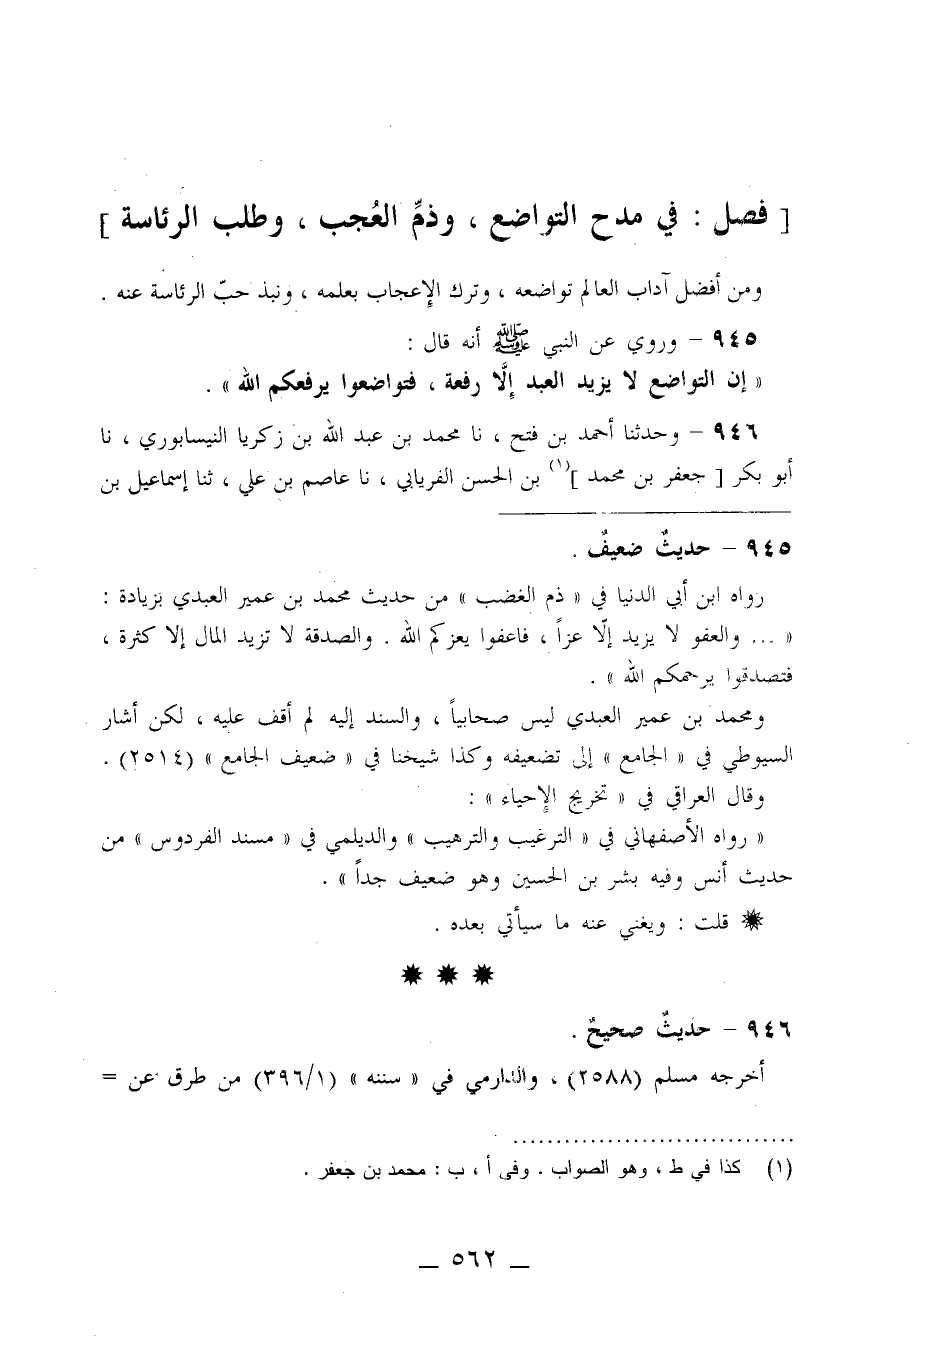 [ فصل : في مدح التواضع ، وذمِّ العُجب ، وطلب الرئاسة ]
ومن أفضل آداب العالم تواضعه ، وترك الإعجاب بعلمه ، ونبذ حبّ الرئاسة عنه .
٩٤٥ – وروي عن النبي ﷺ أنه قال :
« إن التواضع لا يزيد العبد إلَّا رفعة ، فتواضعوا يرفعكم الله » .
٩٤٦ – وحدثنا أحمد بن فتح ، نا محمد بن عبد الله بن زكريا النيسابوري ، نا
أبو بكر [ جعفر بن محمد ](١) بن الحسن الفريابي ، نا عاصم بن علي ، ثنا إسماعيل بن
٩٤٥ – حديثٌ ضعيفٌ .
رواه ابن أبي الدنيا في « ذم الغضب » من حديث محمد بن عمير العبدي بزيادة :
« ... والعفو لا يزيد إلّا عزاً ، فاعفوا يعزكم الله . والصدقة لا تزيد المال إلا كثرة ،
فتصدقوا يرحمكم الله » .
ومحمد بن عمير العبدي ليس صحابياً ، والسند إليه لم أقف عليه ، لكن أشار
السيوطي في « الجامع » إلى تضعيفه وكذا شيخنا في « ضعيف الجامع » (٢٥١٤) .
وقال العراقي في « تخريج الإحياء » :
« رواه الأصفهاني في « الترغيب والترهيب » والديلمي في « مسند الفردوس » من
حديث أنس وفيه بشر بن الحسين وهو ضعيف جداً » .
✸ قلت : ويغني عنه ما سيأتي بعده .
✸ ✸ ✸
٩٤٦ – حديثٌ صحيحٌ .
أخرجه مسلم (٢٥٨٨) ، والدارمي في « سننه » (٣٩٦/١) من طرق عن =
(١) كذا في ط ، وهو الصواب . وفى أ ، ب : محمد بن جعفر .
— ٥٦٢ —